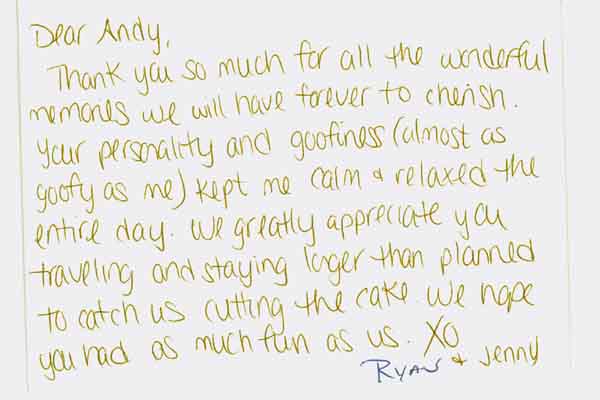 Dear Andy,
Thank you so much for all the wonderful
memories we will have forever to cherish.
Your personality and goofiness (almost as
goofy as me) kept me calm & relaxed the
entire day. We greatly appreciate you
traveling and staying longer than planned
to catch us cutting the cake. We hope
you had as much fun as us. XO
Ryan & Jenny